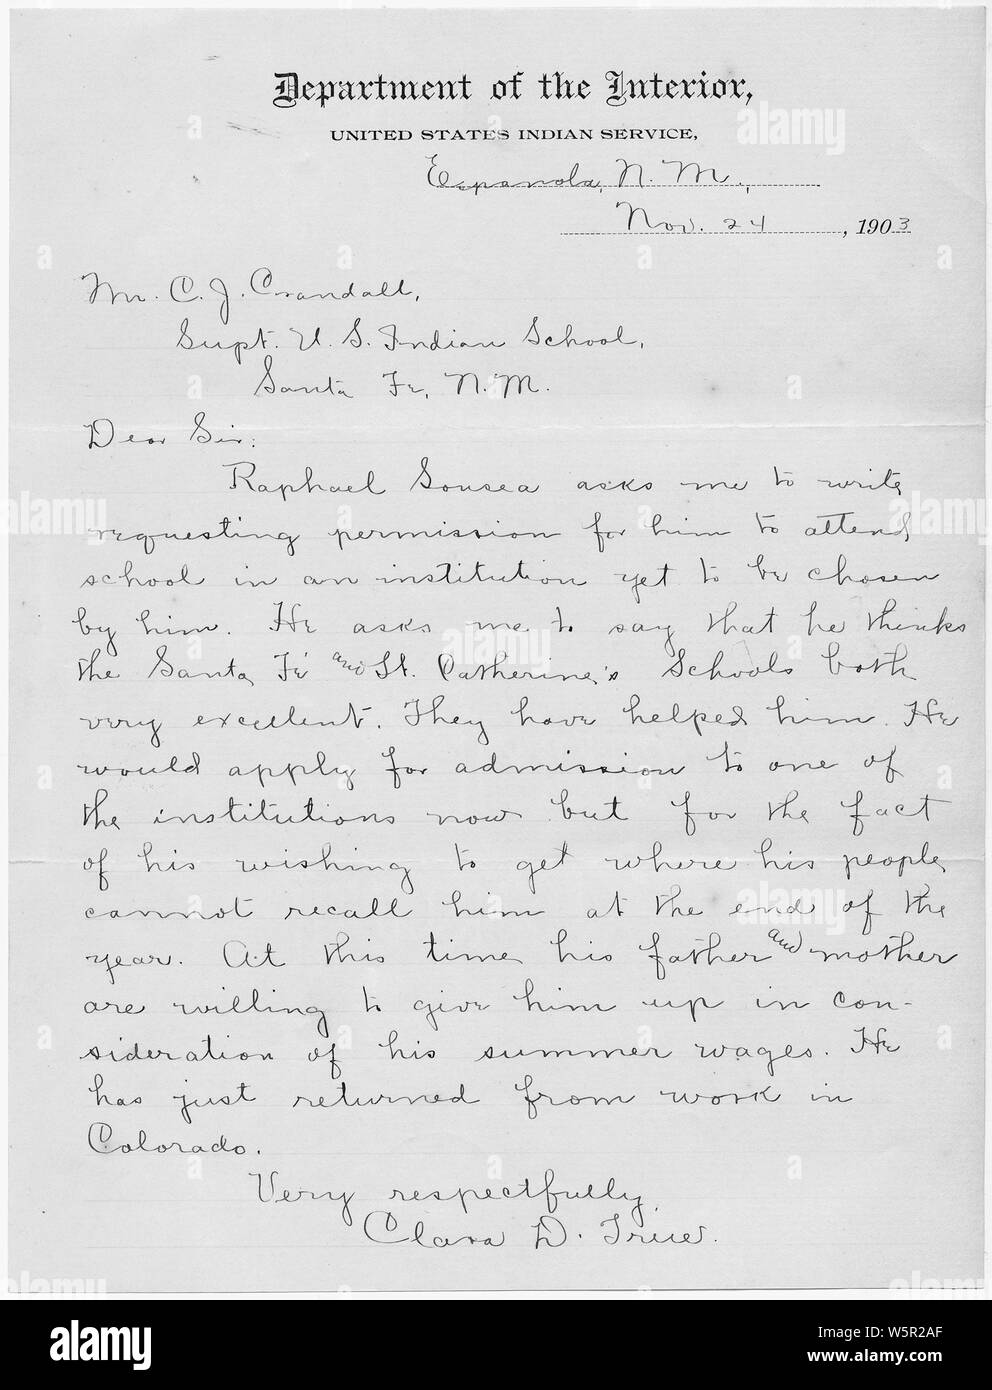 Department of the Interior,
UNITED STATES INDIAN SERVICE,
Espanola, N. M.,
Nov. 24, 1903
Mr. C. J. Crandall,
Supt. U. S. Indian School,
Santa Fe, N. M.
Dear Sir:
Raphael Sousea asks me to write
requesting permission for him to attend
school in an institution yet to be chosen
by him. He asks me to say that he thinks
the Santa Fé and St. Catherine's Schools both
very excellent. They have helped him. He
would apply for admission to one of
the institutions now but for the fact
of his wishing to get where his people
cannot recall him at the end of the
year. At this time his father and mother
are willing to give him up in con-
sideration of his summer wages. He
has just returned from work in
Colorado.
Very respectfully,
Clara D. True.
alamy
Image ID: W5R2AF
www.alamy.com